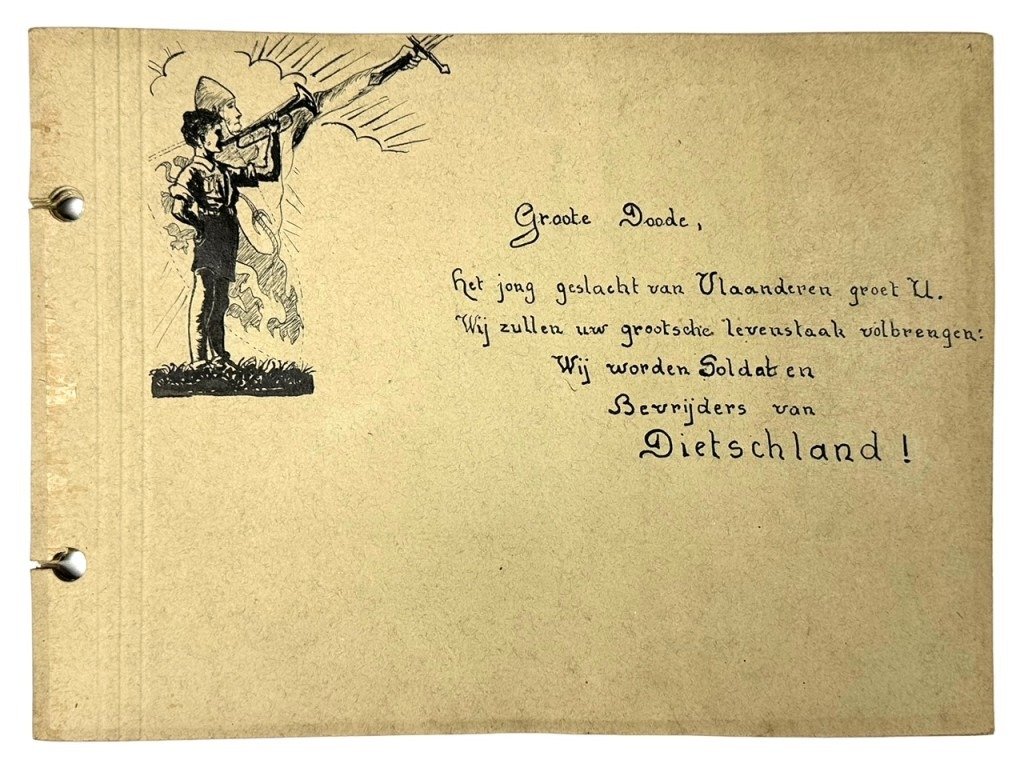 1
Groote Doode,
het jong geslacht van Vlaanderen groet U.
Wij zullen uw grootsche levenstaak volbrengen:
Wij worden Soldaten
Bevrijders van
Dietschland !